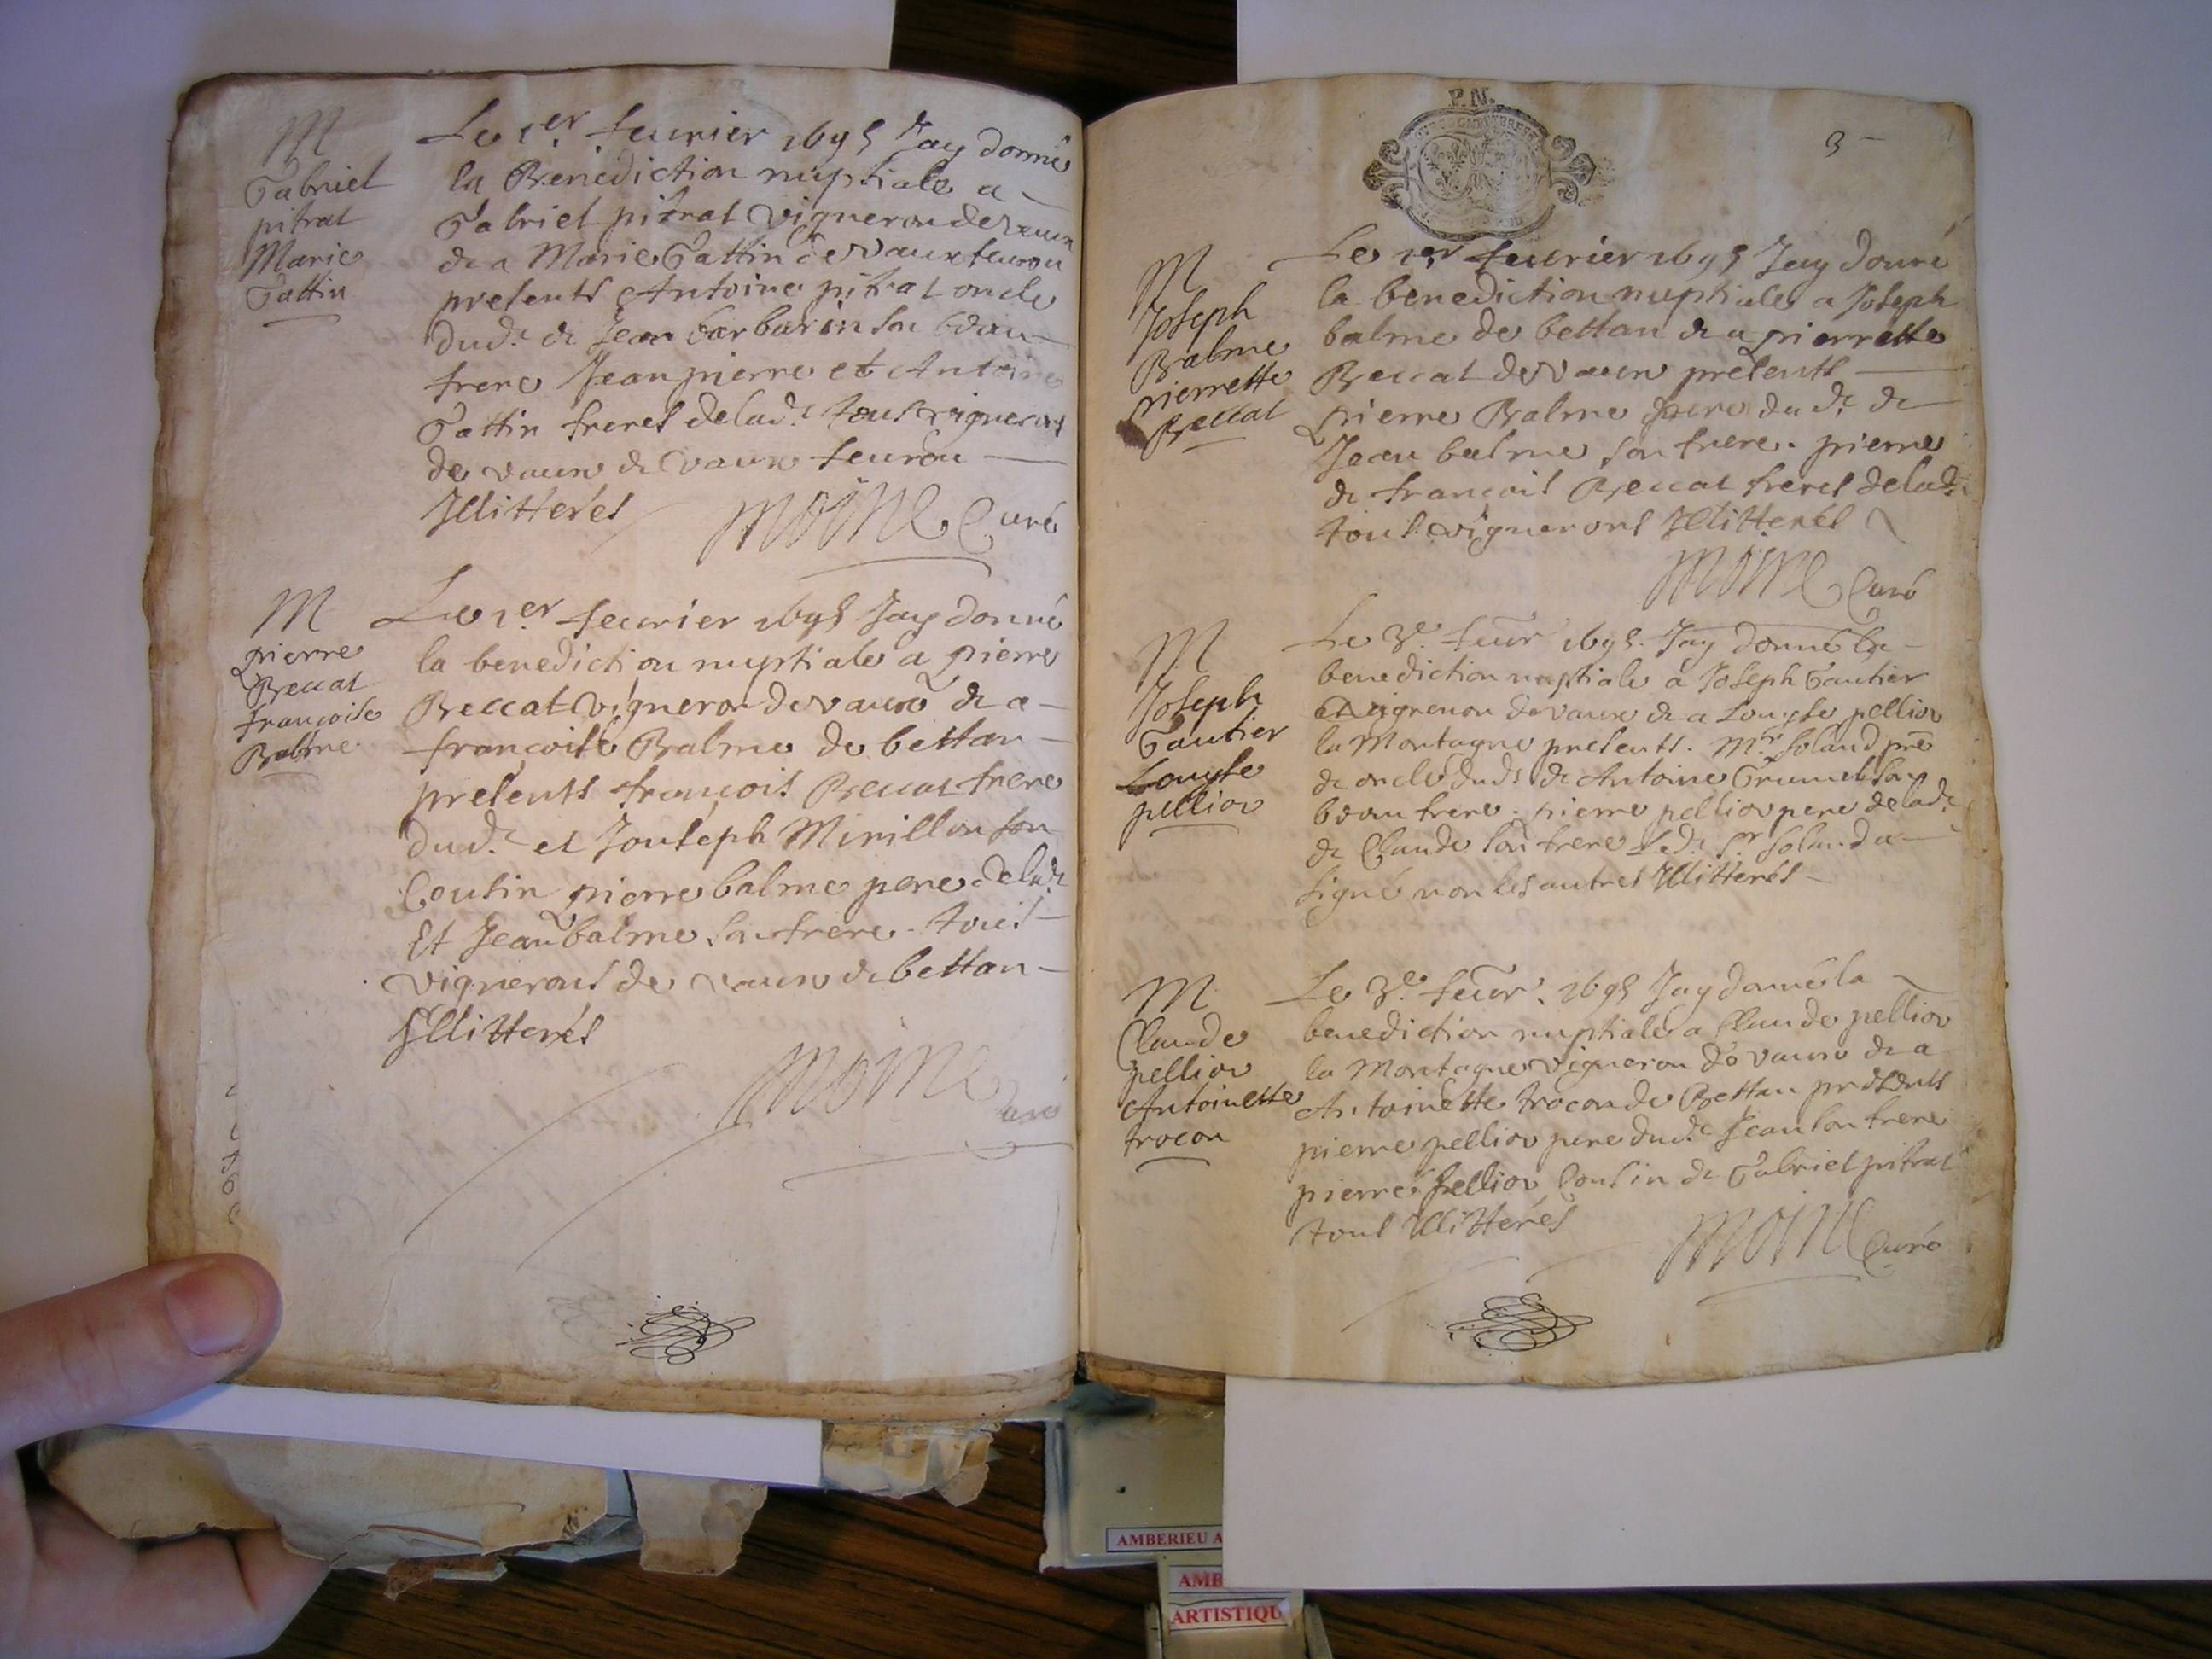 M
Gabriel
pitrat
Marie
Gattin
Le 1er feurier 1695 Jay donné
la Benediction nuptiale a
Gabriel pitrat vigneron de vaux
& a Marie Gattin de vaux feurou
presents Antoine pitrat oncle
dud. & Jean barbarin son beau
frere Jean pierre et Antoine
Gattin freres de lad. tous vignerons
de vaux & vaux feurou
Jllitterés
moine Curé
M
pierre
Beccat
françoise
Balme
Le 1er feurier 1695 Jay donné
la benediction nuptiale a pierre
Beccat vigneron de vaux & a
françoise Balme de bettan
presents françois Beccat frere
dud. et Jouseph Mirillon son
Cousin pierre balme pere de lad.
Et Jean balme son frere tous
vignerons de vaux & bettan
Jllitterés
moine Curé
P.N.
3
M
Joseph
Balme
pierrette
Beccat
Le 1er feurier 1695 Jay donné
la benediction nuptiale a Joseph
balme de bettan & a pierrette
Beccat de vaux presents
pierre Balme pere dud. &
Jean balme son frere. pierre
& françois Beccat freres de lad.
tous vignerons Jllitterés
moine Curé
M
Joseph
Gautier
Louyse
pelliou
Le 3e. feur 1695. Jay donné la
benediction nuptiale a Joseph Gautier
vigneron de vaux & a Louyse pelliou
la Montagne presents. Mre Soland pre
& oncle dud. & Antoine Grumel son
beau frere. pierre pelliou pere de lad.
& Claude son frere Led. Sr Soland a
signé non les autres Jllitterés
M
Claude
pelliou
Antoinette
trocon
Le 3e. feur. 1695 Jay donné la
benediction nuptiale a Claude pelliou
la Montagne vigneron de vaux & a
Antoinette trocon de Bettan presents
pierre pelliou pere dud. Jean son frere
pierre pelliou Cousin & Gabriel pitrat
tous Jllitterés
moine Curé
AMBERIEU A
AMB
ARTISTIQU